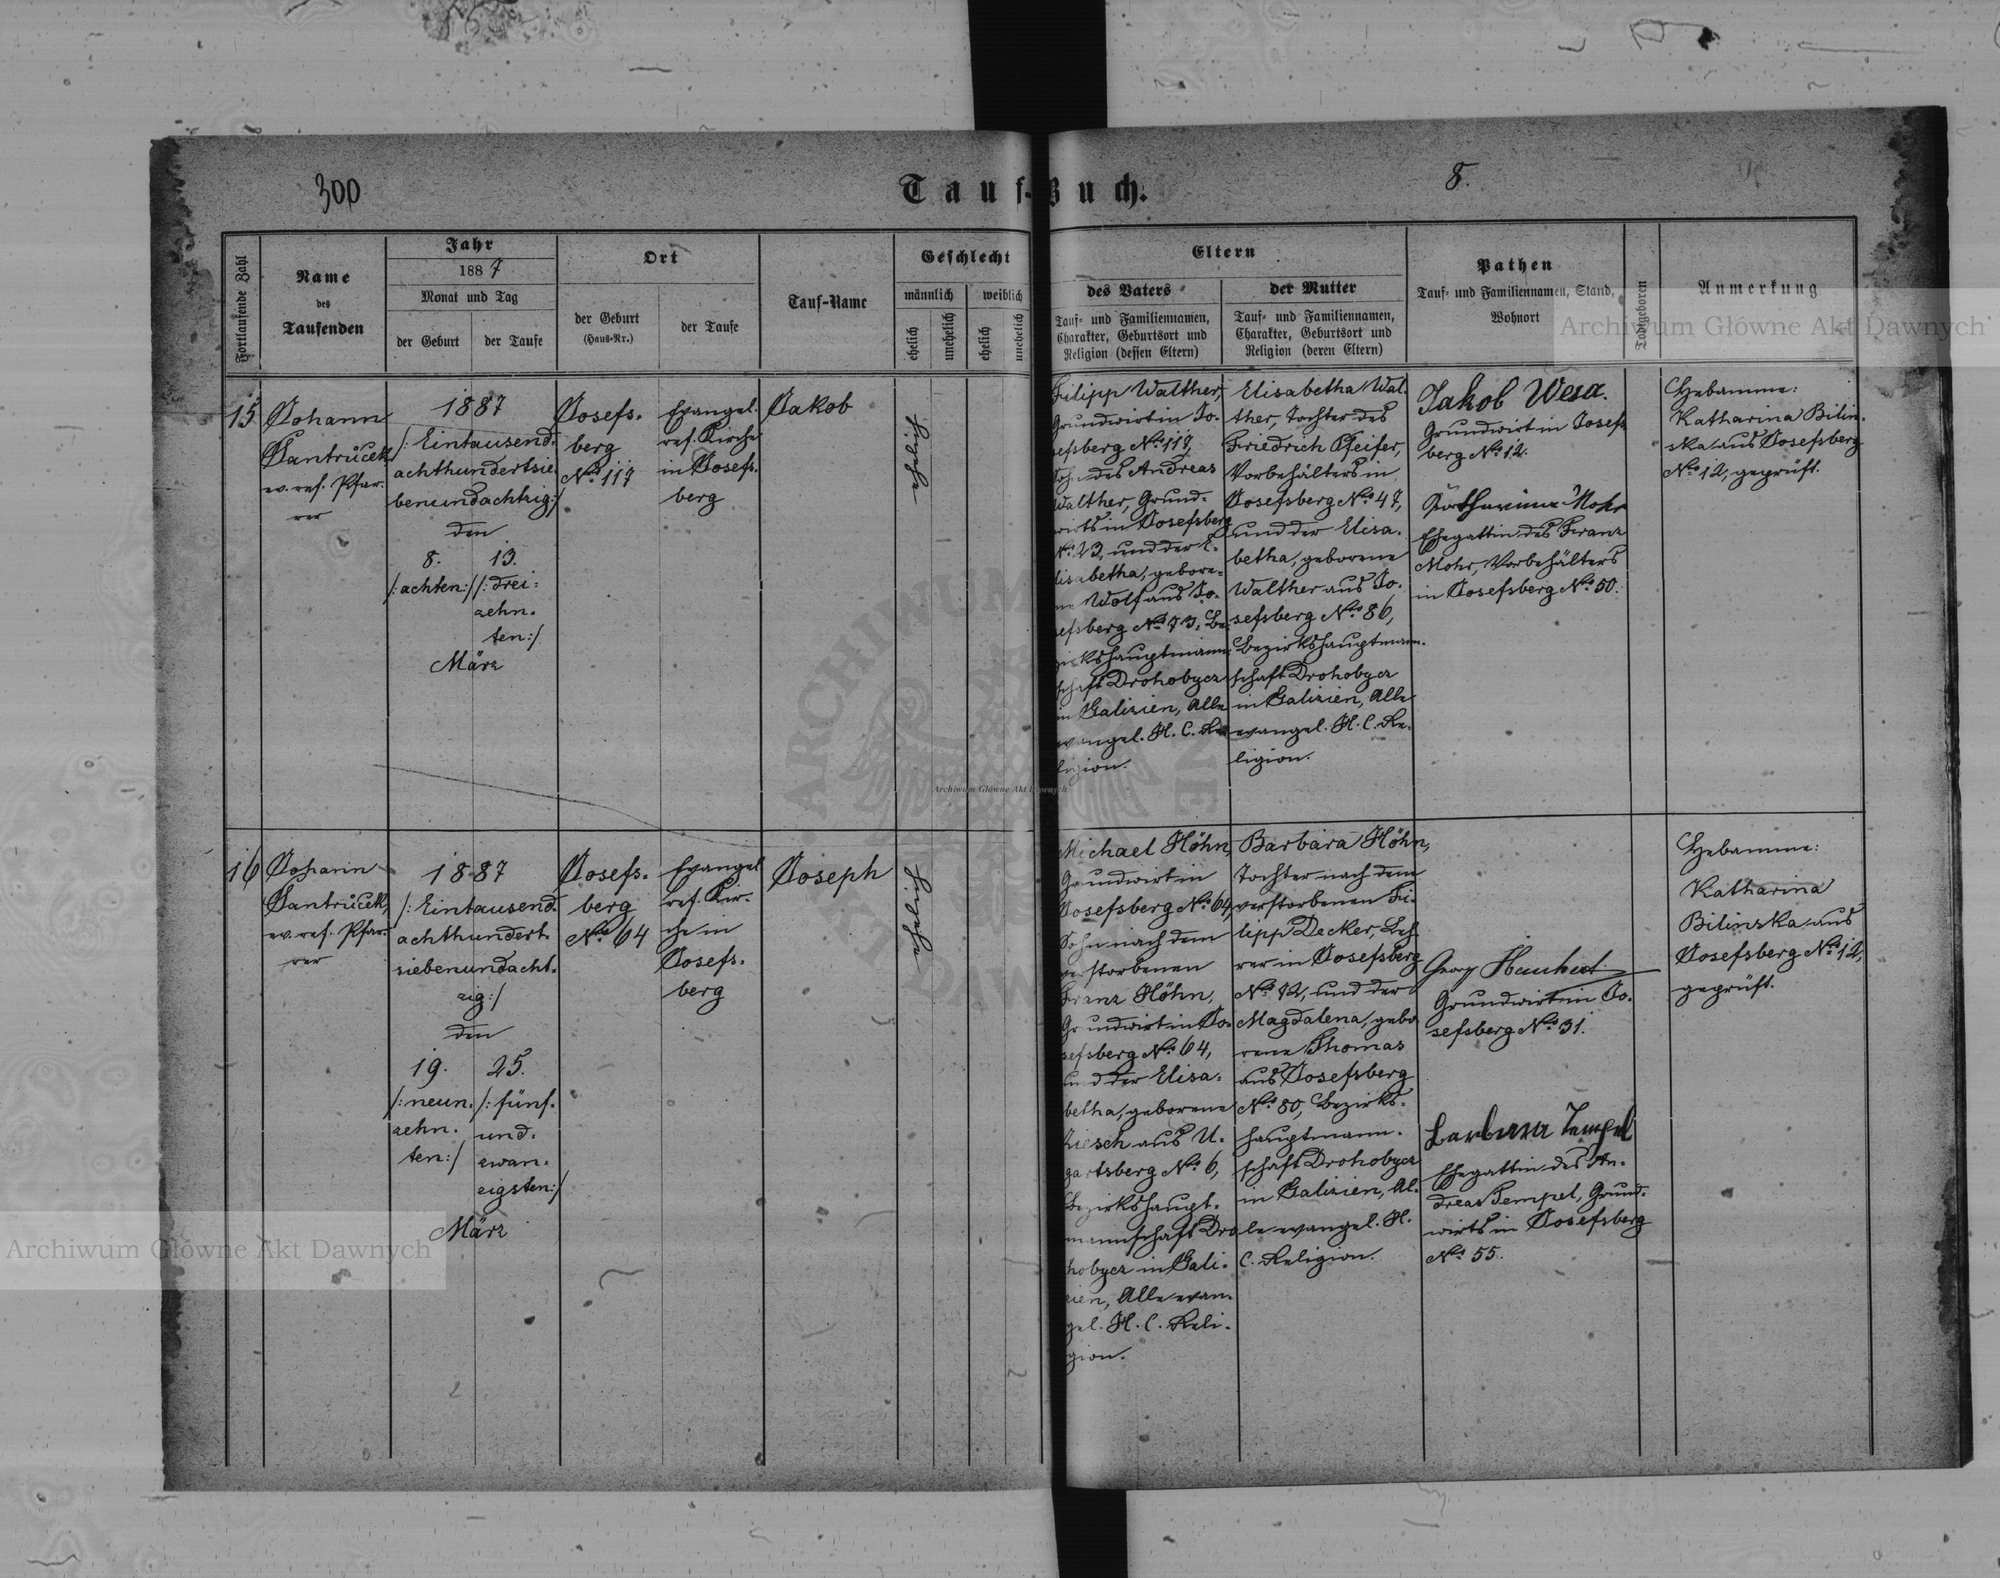 300
Tauf-Buch.
8.
Fortlaufende Zahl
Name
des
Taufenden
Jahr
1887
Monat und Tag
der Geburt
der Taufe
Ort
der Geburt
(Haus-Nr.)
der Taufe
Tauf-Name
Geschlecht
männlich
weiblich
ehelich
unehelich
ehelich
unehelich
Eltern
des Vaters
Tauf- und Familiennamen,
Charakter, Geburtsort und
Religion (dessen Eltern)
der Mutter
Tauf- und Familiennamen,
Charakter, Geburtsort und
Religion (deren Eltern)
Pathen
Tauf- und Familiennamen, Stand,
Wohnort
Todtgeboren
Anmerkung
15
Johann
Santrůček
ev. ref. Pfar-
rer
1887
/: Eintausend-
achthundertsie-
benundachtzig :/
den
8.
/: achten :/
13.
/: drei-
zehn-
ten :/
März
Josefs-
berg
No 117
Evangel.
ref. Kirche
in Josefs-
berg
Jakob
ehelich
Filipp Walther,
Grundwirt in Jo-
sefsberg No 117,
Sohn des Andreas
Walther, Grund-
wirts in Josefsberg
No 23, und der E-
lisabetha, gebore-
ne Wolf aus Jo-
sefsberg No 73, Be-
zirkshauptmann-
schaft Drohobycz
in Galizien, Alle
evangel. H. C. Re-
ligion.
Elisabetha Wal-
ther, Tochter des
Friedrich Pfeifer,
Vorbehälters in
Josefsberg No 47,
und der Elisa-
betha, geborene
Walther aus Jo-
sefsberg No 86,
Bezirkshauptmann-
schaft Drohobycz
in Galizien, Alle
evangel. H. C. Re-
ligion.
Jakob Wesa.
Grundwirt in Josefs-
berg No 12.
Katharina Mohr
Ehegattin des Franz
Mohr, Vorbehälters
in Josefsberg No 50.
Hebamme:
Katharina Bilin-
ska aus Josefsberg
No 12, geprüft.
16
Johann
Santrůček,
ev. ref. Pfar-
rer
1887
/: Eintausend-
achthundert-
siebenundacht-
zig :/
den
19.
/: neun-
zehn-
ten :/
25.
/: fünf-
und-
zwan-
zigsten :/
März
Josefs-
berg
No 64
Evangel.
ref. Kir-
che in
Josefs-
berg
Joseph
ehelich
Michael Höhn,
Grundwirt in
Josefsberg No 64,
Sohn nach dem
verstorbenen
Franz Höhn,
Grundwirt in Jo-
sefsberg No 64,
und der Elisa-
betha, geborene
Riesch aus U-
gartsberg No 6,
Bezirkshaupt-
mannschaft Dro-
hobycz in Gali-
zien, Alle evan-
gel. H. C. Reli-
gion.
Barbara Höhn,
Tochter nach dem
verstorbenen Fi-
lipp Decker, Leh-
rer in Josefsberg
No 72, und der
Magdalena, gebo-
rene Thomas
aus Josefsberg
No 80, Bezirks-
hauptmann-
schaft Drohobycz
in Galizien, Al-
le evangel. H.
C. Religion.
Georg
Grundwirt in Jo-
sefsberg No 31.
Barbara Tempel
Ehegattin des An-
dreas Tempel, Grund-
wirts in Josefsberg
No 55.
Hebamme:
Katharina
Bilinska aus
Josefsberg No 12,
geprüft.
Archiwum Główne Akt Dawnych
Archiwum Główne Akt Dawnych
Archiwum Główne Akt Dawnych